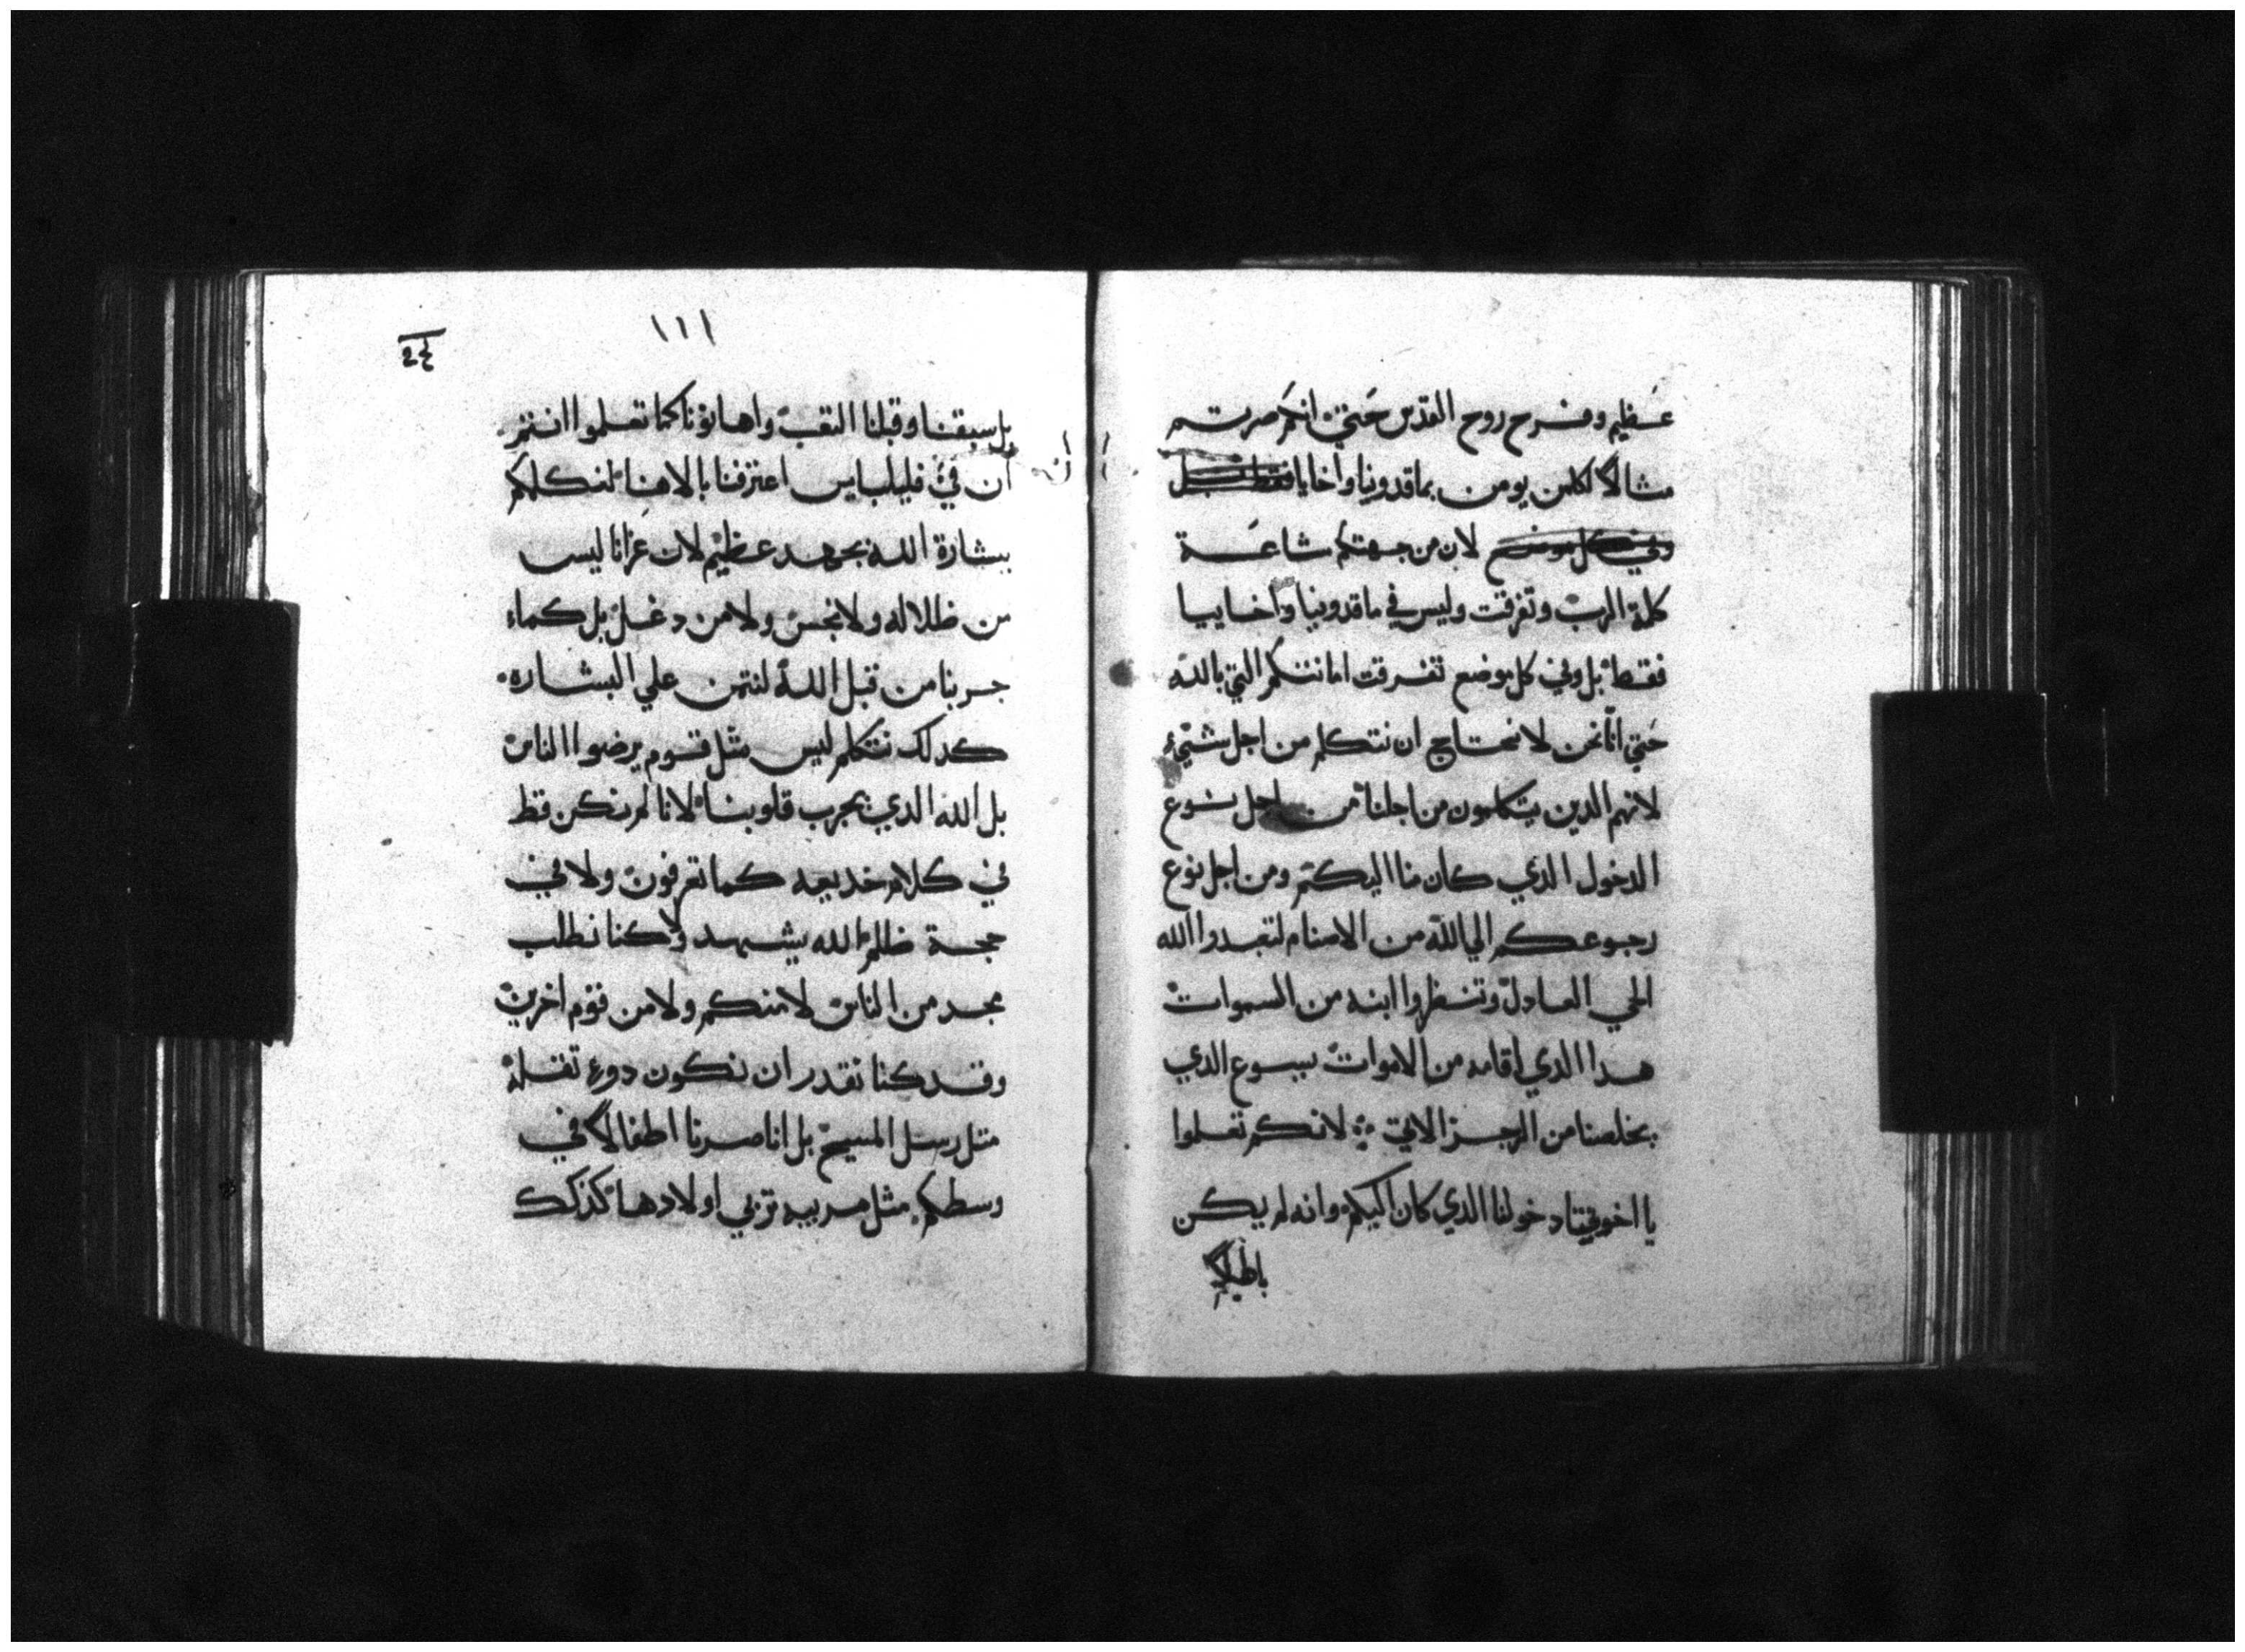 عظيم وفرح روح القدس حتي انكم صرتم
مثالاً لكلمن يومن بماقدونيا واخايا فقط بل
وفي كل موضع لان من جهتكم شاعة
كلمة الرب وتفرقت وليس في ماقدونيا واخاييا
فقط بل وفي كل موضع تفرقت امانتكم التي بالله
حتي انّا نحن لا نحتاج ان نتكلم من اجل شيء
لانهم الدين يتكلمون من اجلنا من اجل نوع
الدخول الدي كان منا اليكم ومن اجل نوع
رجوعكم الي الله من الاصنام لتعبدوا الله
الحي العادل وتنتظروا ابنه من السموات
هدا الدي اقامه من الاموات يسوع الدي
يخلصنا من الرجز الاتي لانكم تعلموا
يا اخوتي دخولنا الدي كان اليكم وانه لم يكن
باطلاً
١١١
بل سبقنا وقبلنا التعب واهانونا كما تعلموا انتم
ان في فيليباس اعترفنا بالاهنا لنكلمكم
ببشارة الله بجهد عظيم لان عزانا ليس
من ظلاله ولا نجس ولا من دغل بل كما
جربنا من قبل الله لنتمن علي البشاره
كدلك نتكلم ليس مثل قوم يرضوا الناس
بل الله الدي يجرب قلوبنا لانا لم نكن قط
في كلام خديعه كما تعرفون ولا في
حجة ظلم الله يشهد ولا كنا نطلب
مجد من الناس لا منكم ولا من قوم اخرين
وقد كنا نقدر ان نكون دوي تقله
مثل رسل المسيح بل انا صرنا اطفالاً في
وسطكم مثل مربيه تربي اولادها كذلك